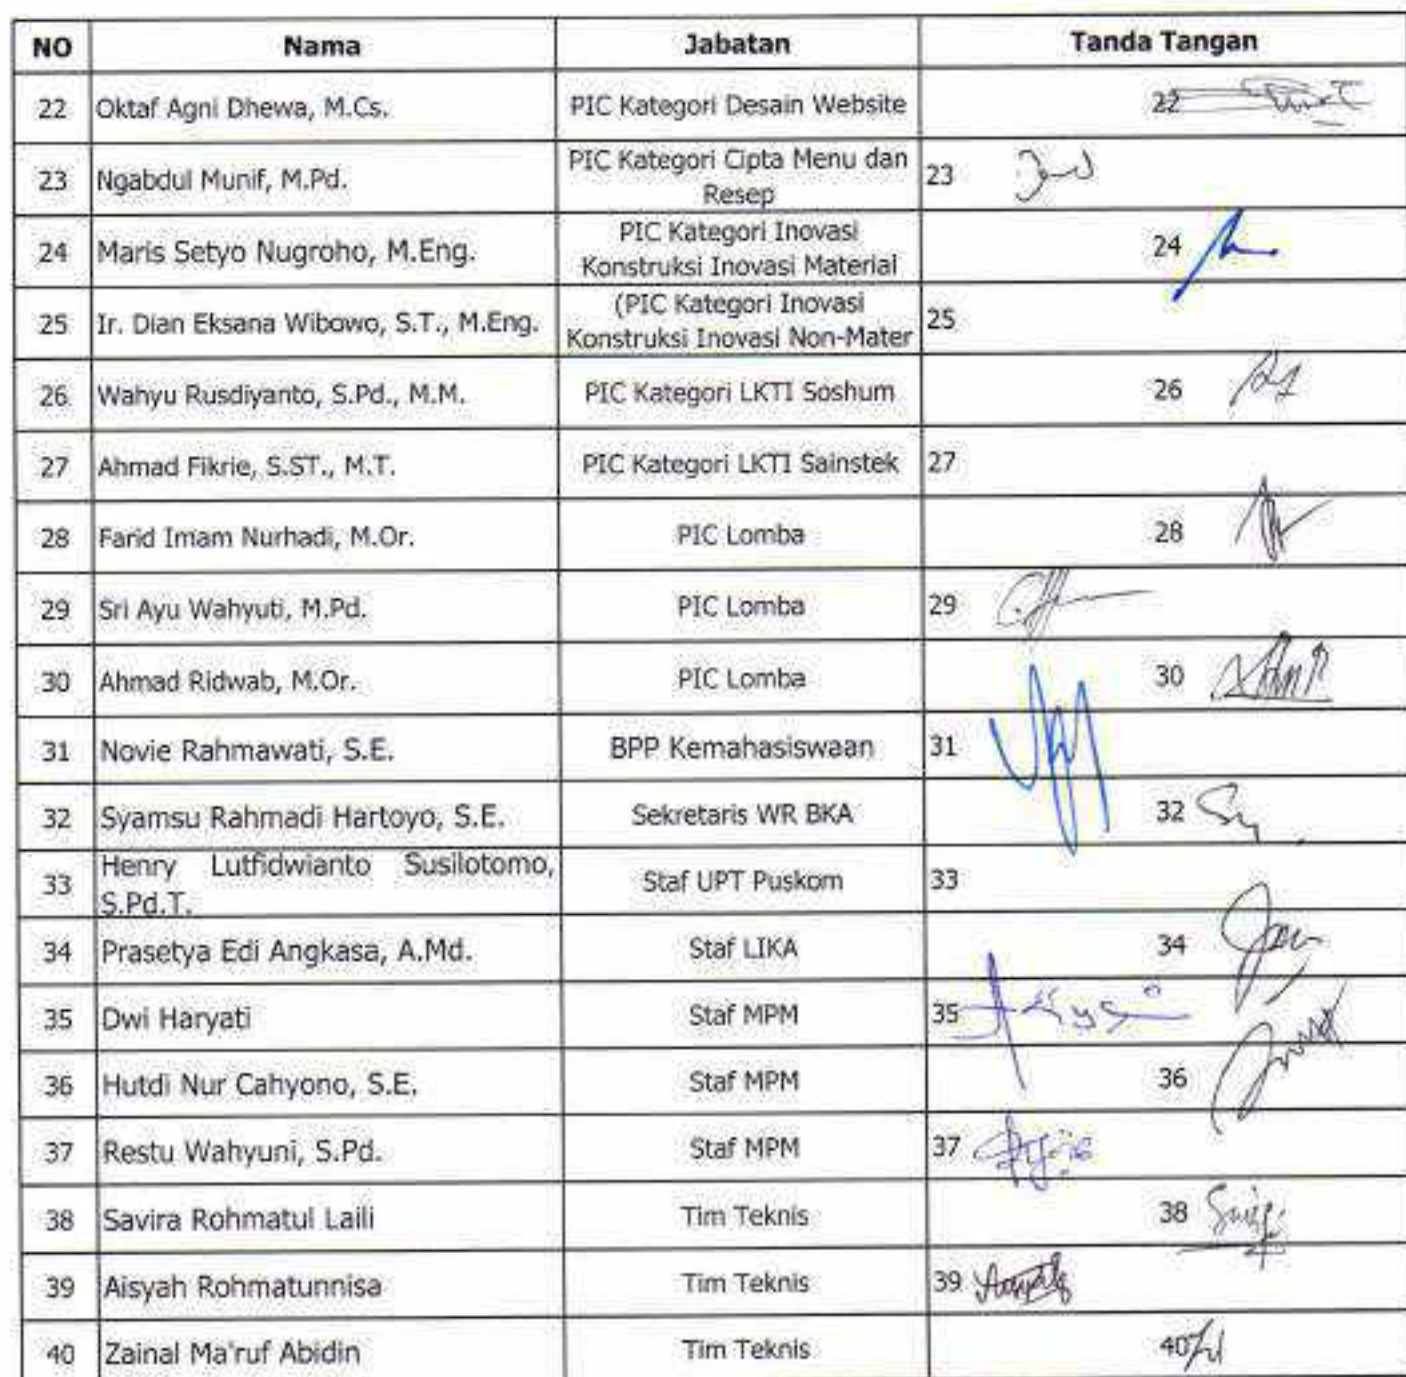 NO Nama Jabatan Tanda Tangan
22 Oktaf Agni Dhewa, M.Cs. PIC Kategori Desain Website 22
23 Ngabdul Munif, M.Pd. PIC Kategori Cipta Menu dan
Resep 23
24 Maris Setyo Nugroho, M.Eng. PIC Kategori Inovasi
Konstruksi Inovasi Material 24
25 Ir. Dian Eksana Wibowo, S.T., M.Eng. (PIC Kategori Inovasi
Konstruksi Inovasi Non-Mater 25
26 Wahyu Rusdiyanto, S.Pd., M.M. PIC Kategori LKTI Soshum 26
27 Ahmad Fikrie, S.ST., M.T. PIC Kategori LKTI Sainstek 27
28 Farid Imam Nurhadi, M.Or. PIC Lomba 28
29 Sri Ayu Wahyuti, M.Pd. PIC Lomba 29
30 Ahmad Ridwab, M.Or. PIC Lomba 30
31 Novie Rahmawati, S.E. BPP Kemahasiswaan 31
32 Syamsu Rahmadi Hartoyo, S.E. Sekretaris WR BKA 32
33 Henry Lutfidwianto Susilotomo,
S.Pd.T. Staf UPT Puskom 33
34 Prasetya Edi Angkasa, A.Md. Staf LIKA 34
35 Dwi Haryati Staf MPM 35
36 Hutdi Nur Cahyono, S.E. Staf MPM 36
37 Restu Wahyuni, S.Pd. Staf MPM 37
38 Savira Rohmatul Laili Tim Teknis 38
39 Aisyah Rohmatunnisa Tim Teknis 39
40 Zainal Ma'ruf Abidin Tim Teknis 40